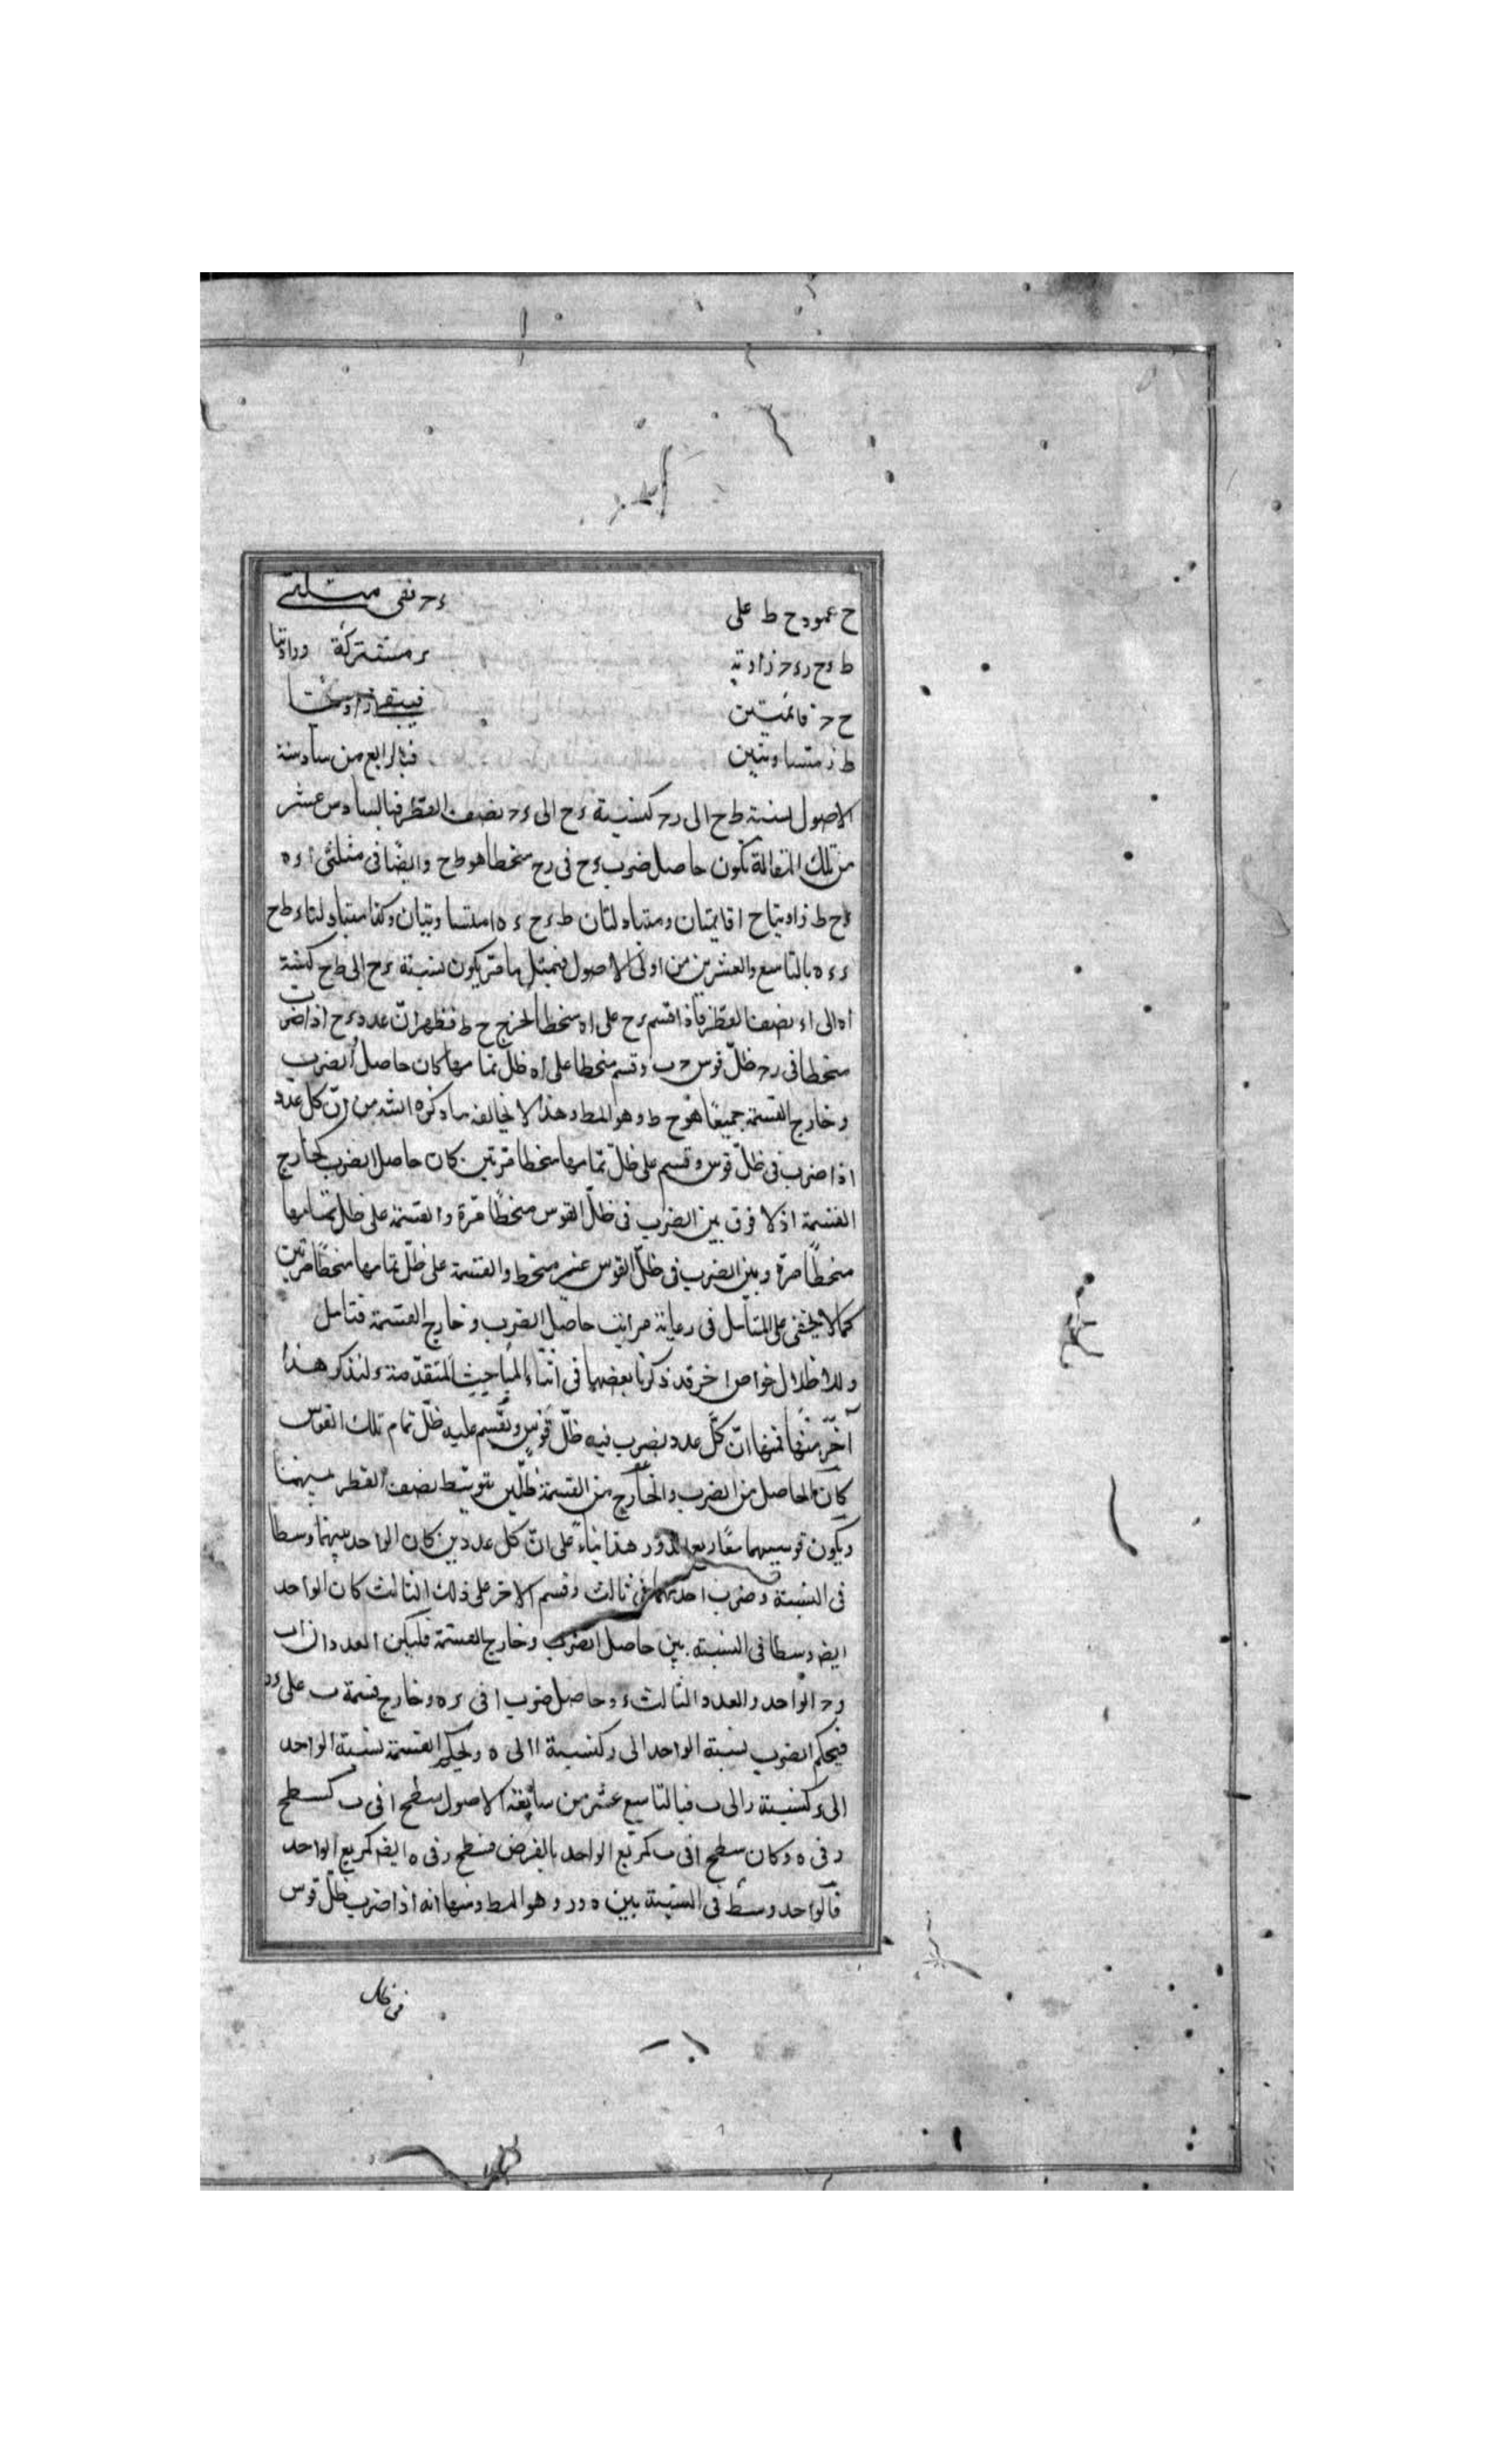 ح عمود ح ط على ء ح ففى مثلثى
ط ء ح ر ء ح زاوية ء مشتركة وزاويتا
ح ح قائمتين فيبقى زاويتا
ط ز متساويتين فبالرابع من سادسة
الاصول نسبة ط ح الى ر ح كنسبة ء ح الى ء ح نصف القطر فبالسادس عشر
من تلك المقالة يكون حاصل ضرب ء ح فى ر ح منحطا هو ط ح وايضا فى مثلثى ا ء ه
ء ح ط زاويتا ح ا قايمتان ومتبادلتان ط ء ح ء ه ا متساويتان وكذا متبادلتا ء ط ح
ء ء ه بالتاسع والعشرين من اولى الاصول فبمثل ما مر يكون نسبة ء ح الى ط ح كنسبة
ا ه الى ا ء نصف القطر فاذا قسم ء ح على ا ه منحطا لخرج ح ط فظهر ان عدد ء ح اذا ضرب
منحطا فى ر ح ظل قوس ح ب وقسم منحطا على ا ه ظل تمامها كان حاصل الضرب
وخارج القسمة جميعا هو ح ط وهو المط وهذا لا يخالف ما ذكره الشه من ان كل عدد
اذا ضرب فى ظل قوس وقسم على ظل تمامها منحطا مرتين كان حاصل الضرب كخارج
القسمة اذ لا فرق بين الضرب فى ظل القوس منحطا مرة والقسمة على ظل تمامها
منحطا مرة وبين الضرب فى ظل القوس غير منحط والقسمة على ظل تمامها منحطا مرتين
كما لا يخفى على المتأمل فى رعاية مراتب حاصل الضرب وخارج القسمة فتامل
وللاظلال خواص اخر قد ذكرنا بعضها فى اثناء المباحث المتقدمة ولنذكر هنا
آخر منها فمنها ان كل عدد يضرب فيه ظل قوس ويقسم عليه ظل تمام تلك القوس
كان الحاصل من الضرب والخارج من القسمة ظلين يتوسط نصف القطر بينهما
ويكون قوسيهما معا ربع الدور هذا بناء على ان كل عددين كان الواحد بينهما وسطا
فى النسبة وضرب احدهما فى ثالث وقسم الاخر على ذلك الثالث كان الواحد
ايضا وسطا فى النسبة بين حاصل الضرب وخارج القسمة فليكن العددان ا ب
و ح الواحد والعدد الثالث ء وحاصل ضرب ا فى ء ه وخارج قسمة ب على ء ر
فيحكم الضرب نسبة الواحد الى ء كنسبة ا الى ه وبحكم القسمة نسبة الواحد
الى ء كنسبة ر الى ب فبالتاسع عشر من سابعة الاصول سطح ا فى ب كسطح
ر فى ه وكان سطح ا فى ب كمربع الواحد بالفرض فسطح ر فى ه ايضا كمربع الواحد
فالواحد وسط فى النسبة بين ه و ر وهو المط ومنها انه اذا ضرب ظل قوس
فى ظل